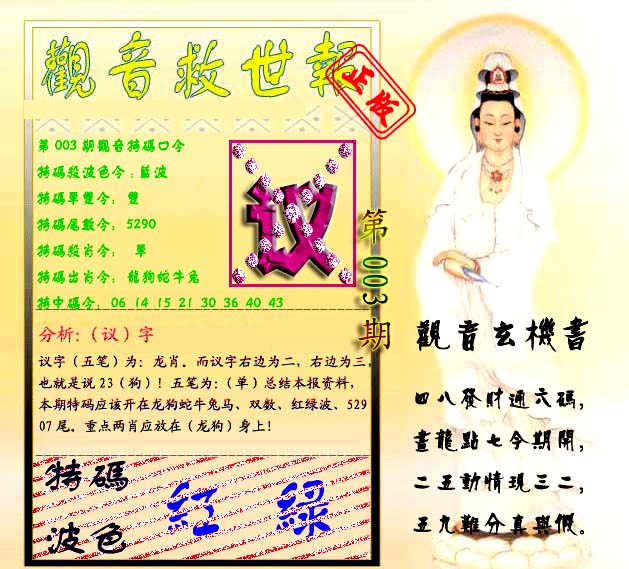 觀音救世報
正版
第003期觀音特碼口令
特碼殺波色令：藍波
特碼單雙令： 雙
特碼尾數令： 5290
特碼殺肖令： 單
特碼出肖令： 龍狗蛇牛兔
特中碼令： 06 14 15 21 30 36 40 43
议
第003期
分析：（议）字
议字（五笔）为：龙肖。而议字右边为二，右边为三，
也就是说23（狗）！五笔为：（单）总结本报资料，
本期特码应该开在龙狗蛇牛兔马、双数、红绿波、529
07尾。重点两肖应放在（龙狗）身上！
特碼
波色
紅 綠
觀音玄機書
四八發財通六碼，
畫龍點七今期開，
二五動情現三二，
五九難分真與假。